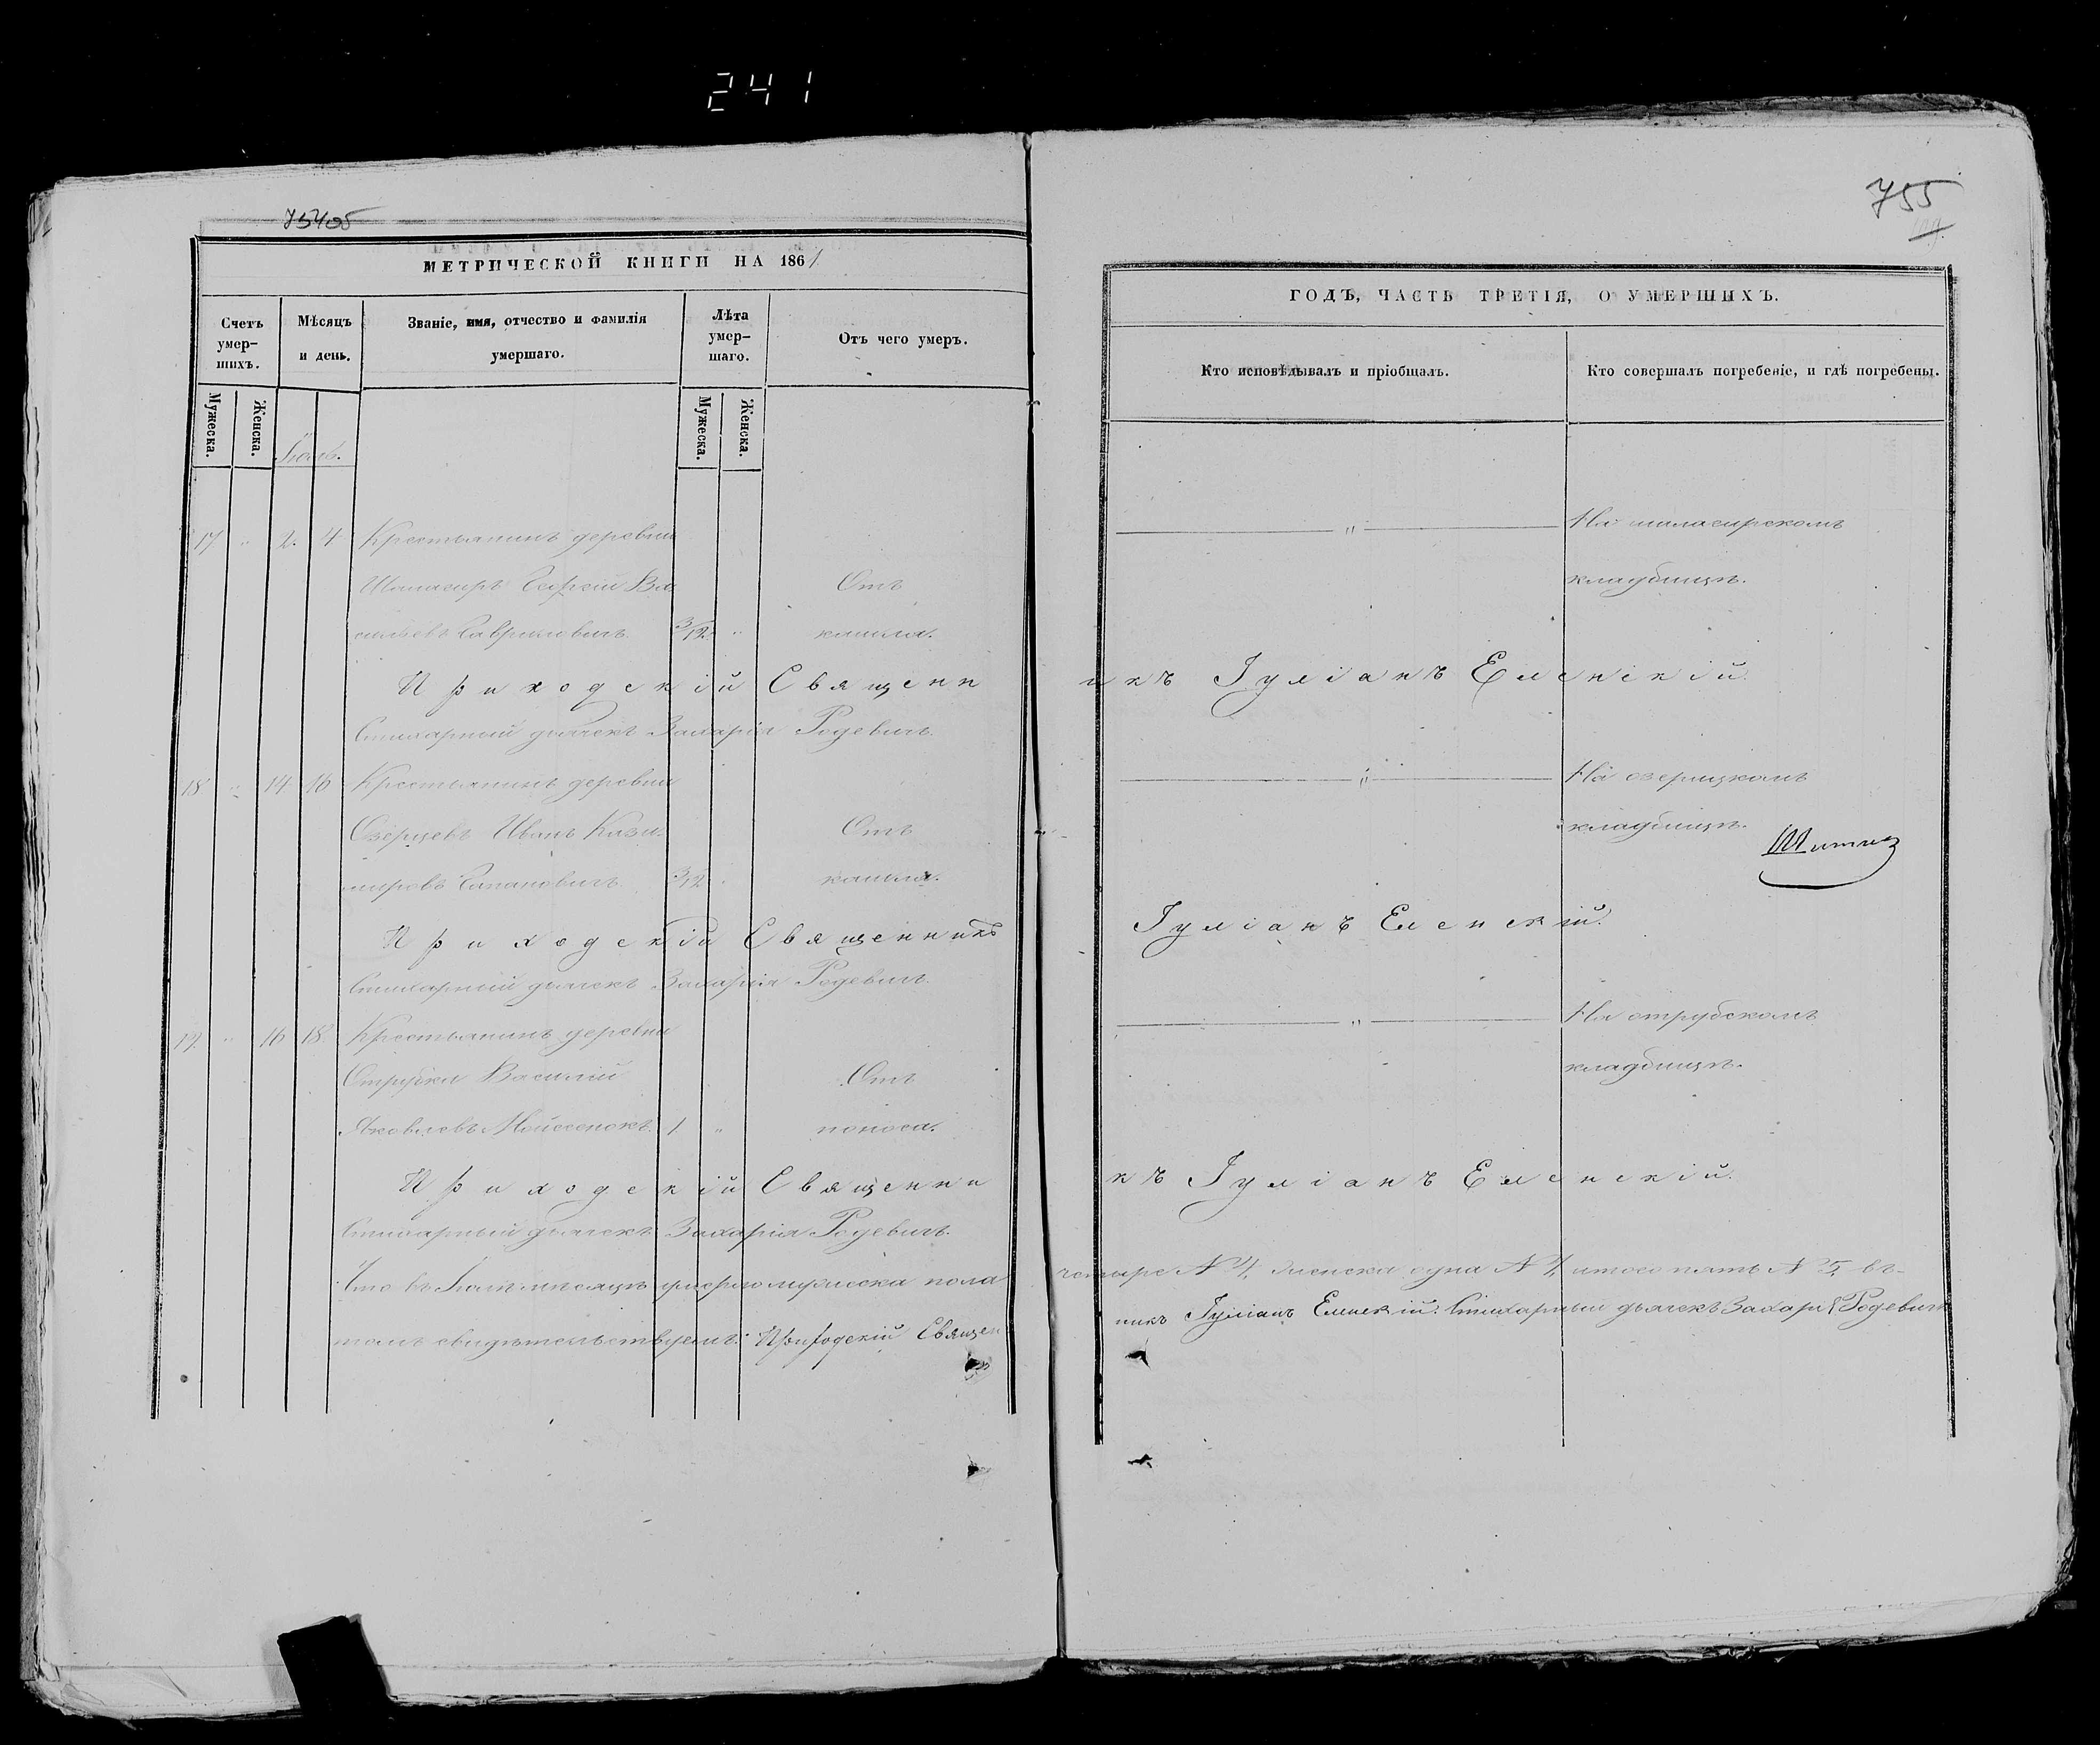 241
75405
755
МЕТРИЧЕСКОЙ КНИГИ НА 1861
ГОДЪ, ЧАСТЬ ТРЕТІЯ, О УМЕРШИХЪ.
Счетъ умер-шихъ.
Мѣсяцъ и день.
Званіе, имя, отчество и фамилія умершаго.
Лѣта умер-шаго.
Отъ чего умеръ.
Кто исповѣдывалъ и пріобщалъ.
Кто совершалъ погребеніе, и гдѣ погребены.
Мужеска.
Женска.
Мужеска.
Женска.
17 " 2. 4 Крестьянинъ деревни
Ва
сильевъ Гавриловичъ. 3/12. "
Отъ
кашля.
— " —
На шиласирскомъ
кладбищѣ.
Приходскій Священникъ Іуліанъ Еленскій.
Стихарный дьячекъ Захарія Родевичъ.
18 " 14 16 Крестьянинъ деревни
Озерцевъ Иванъ Кази-
мировъ 3/12 "
Отъ
кашля.
— " —
На озерицкомъ
кладбищѣ.
Приходскій Священникъ Іуліанъ Еленскій.
Стихарный дьячекъ Захарія Родевичъ.
19. " 16 18 Крестьянинъ деревни
Отрубка Василій
Яковлевъ Мойсеенокъ. 1 "
Отъ
поноса.
— " —
На отрубскомъ
кладбищѣ.
Приходскій Священникъ Іуліанъ Еленскій.
Стихарный дьячекъ Захарія Родевичъ.
Что въ мѣсяцѣ умерло мужеска пола четыре № 4, женска одна № 1, итого пять № 5, въ
томъ свидѣтельствуемъ: Приходскій Священникъ Іуліанъ Еленскій. Стихарный дьячекъ Захарія Родевичъ